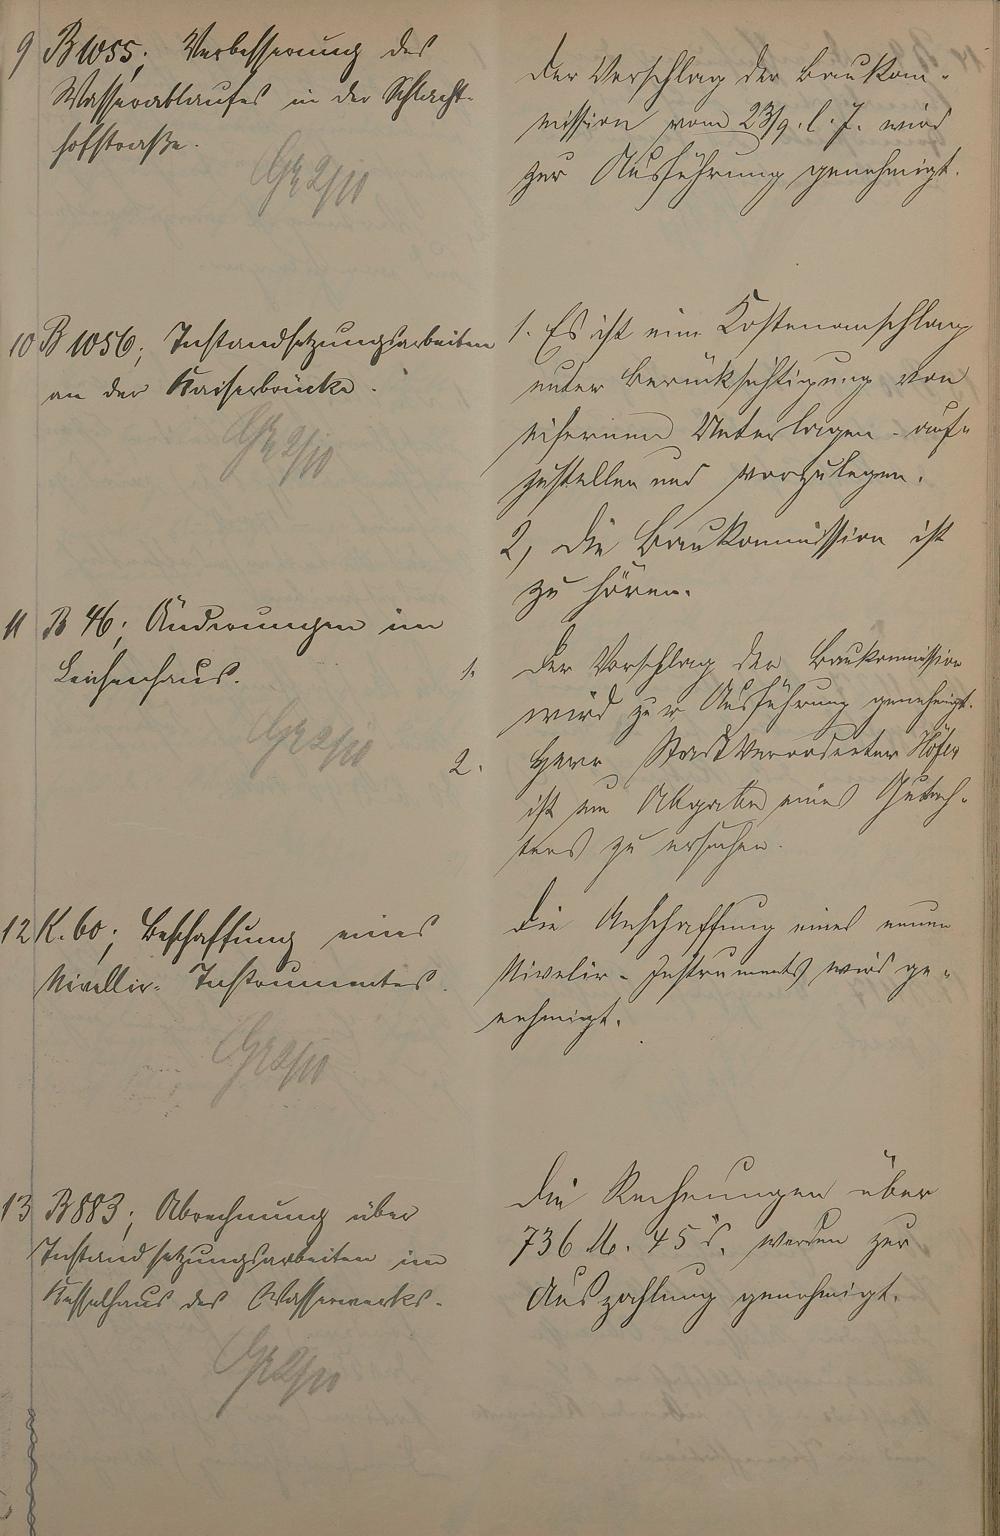 9 B 1055; Verbesserung des
Wasserablaufes in der Schlacht-
hofstraße.
Gr 2/10
Der Vorschlag der Baukom-
mission vom 23/9. l. J. wird
zur Ausführung genehmigt.
10 B 1056; Instandsetzungsarbeiten
an der Kaiserbrücke.
Gr 2/10
1. Es ist ein Kostenanschlag
unter Berücksichtigung von
eisernen Unterlagen auf-
zustellen und vorzulegen.
2, Die Baukommission ist
zu hören.
11 B 46; Änderungen im
Leichenhaus.
Gr 2/10
1. Der Vorschlag der Baukommission
wird zur Ausführung genehmigt.
2. Herr Stadtverordneter Höfer
ist um Abgabe eines Gutach-
tens zu ersuchen.
12 K. 60; Beschaffung eines
Nivellir-Instrumentes.
Gr 2/10
Die Anschaffung eines neuen
Nivelir-Instruments wird ge-
nehmigt.
13 B 883; Abrechnung über
Instandsetzungsarbeiten im
Kesselhaus des Wasserwerks.
Gr 2/10
Die Rechnungen über
736 M. 45 S. werden zur
Auszahlung genehmigt.